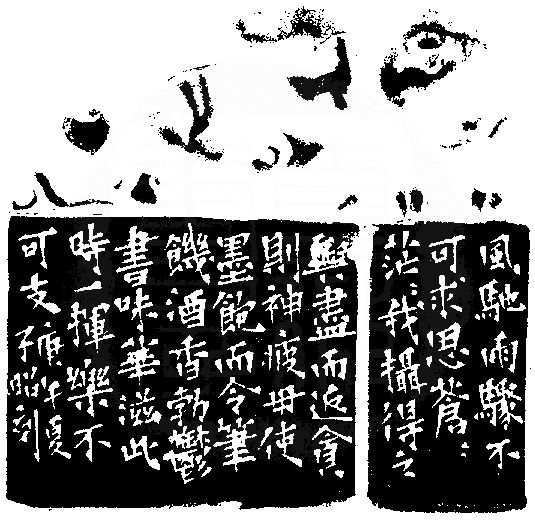 風馳雨驟不
可求思蒼〻
茫〻我攝得之
興盡而返貪
則神疲毋使
墨飽而令筆
饑酒香勃鬱
書味華滋此
時一揮樂不
可支
庚午夏
子昭刻